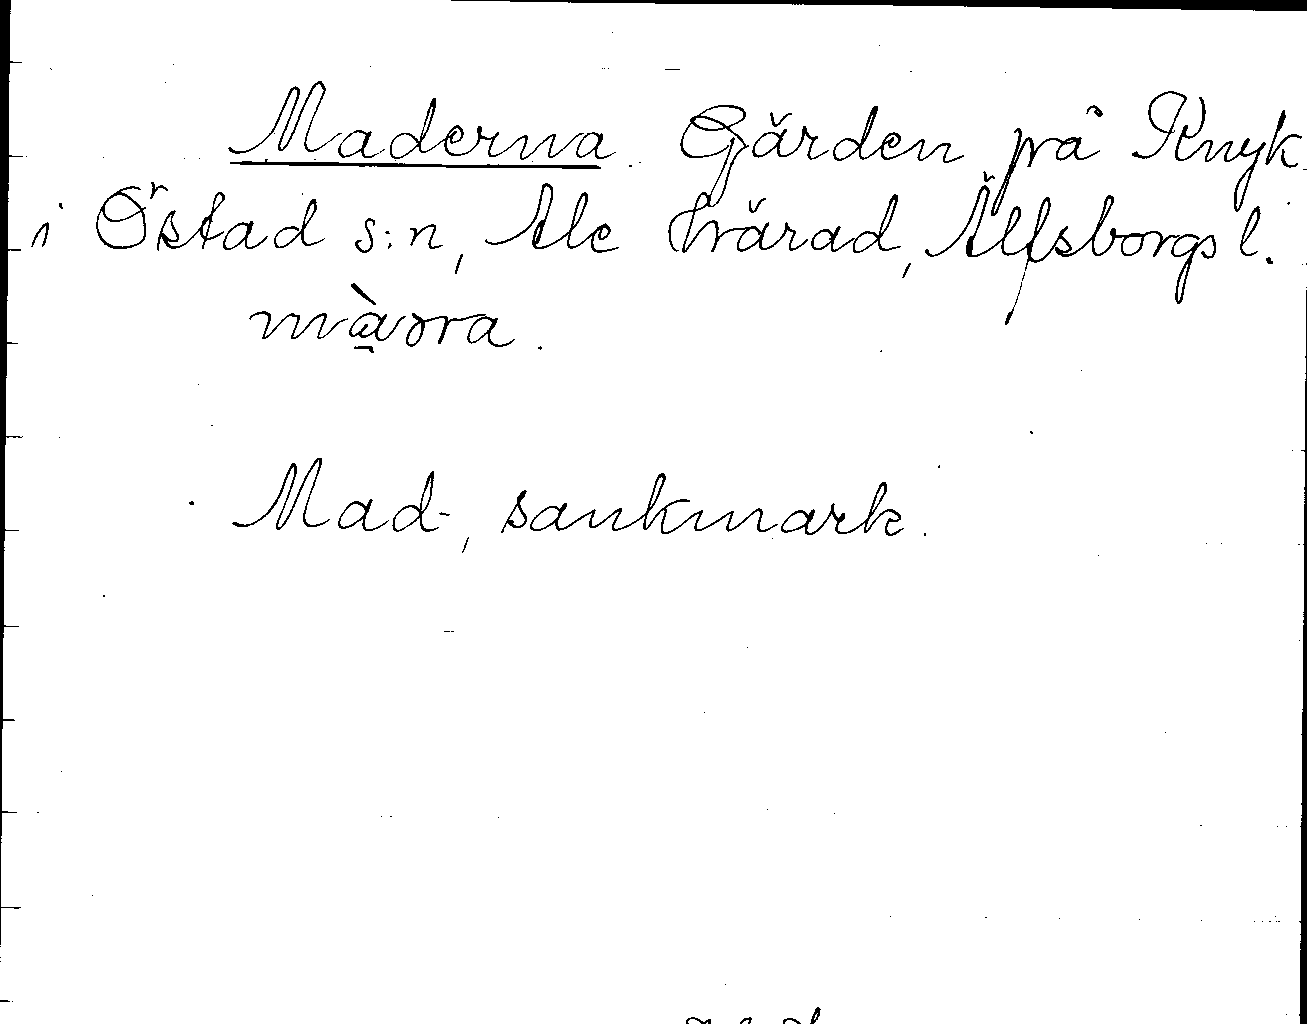 Maderna. Gärden på Knyk
i Östad s:n, Ale härad, Älfsborgs l.
màɔra.
Mad-, sankmark.